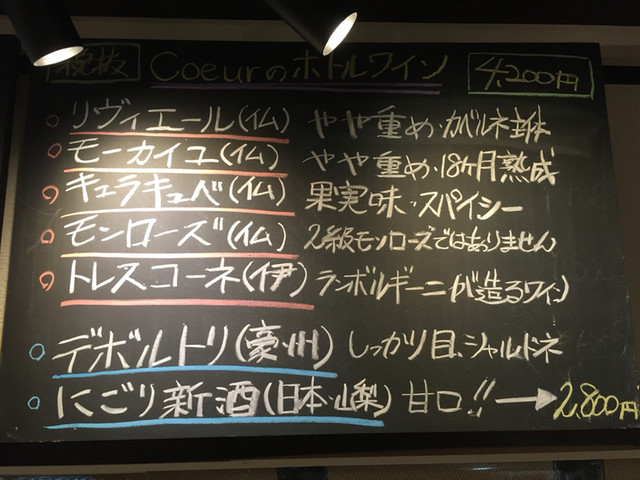 税抜 Coeurのボトルワイン 4,200円
リヴィエール(仏) やや重め・カベルネ主体
モーカイユ(仏) やや重め・18ヶ月熟成
キュラキュベ(仏) 果実味・スパイシー
モンローズ(仏) 2級モンローズではありません
トレスコーネ(伊) ランボルギーニが造るワイン
デボルトリ(豪州) しっかり目、シャルドネ
にごり新酒(日本・山梨) 甘口!!→2,800円